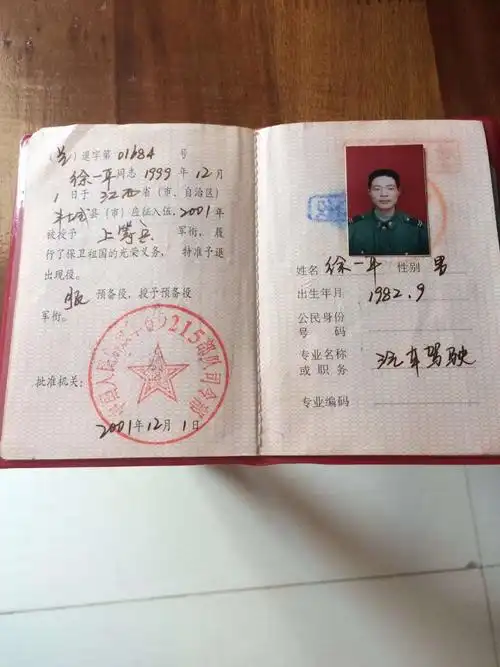 (兰)退字第01684号
徐一平同志1999年12月
1日于江西省(市、自治区)
县(市)应征入伍,2001年
被授予上等兵军衔,履
行了保卫祖国的光荣义务,特准予退
出现役。
服预备役,授予预备役
军衔。
批准机关:
中国人民解放军 215部队司令部
2001年12月1日
姓名徐一平性别男
出生年月1982.9
公民身份
号码
专业名称
或职务汽车驾驶
专业编码